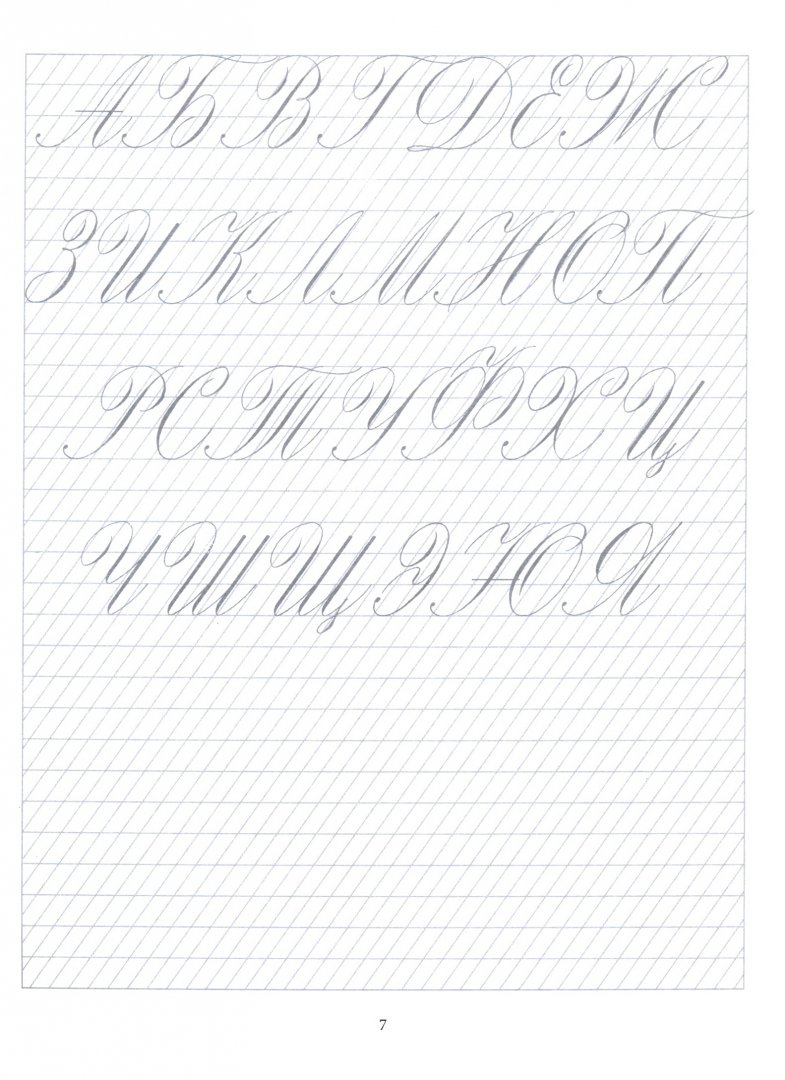 АБВГДЕЖ
ЗИКЛМНОП
РСТУФХЦ
ЧШЩЭЮЯ
7